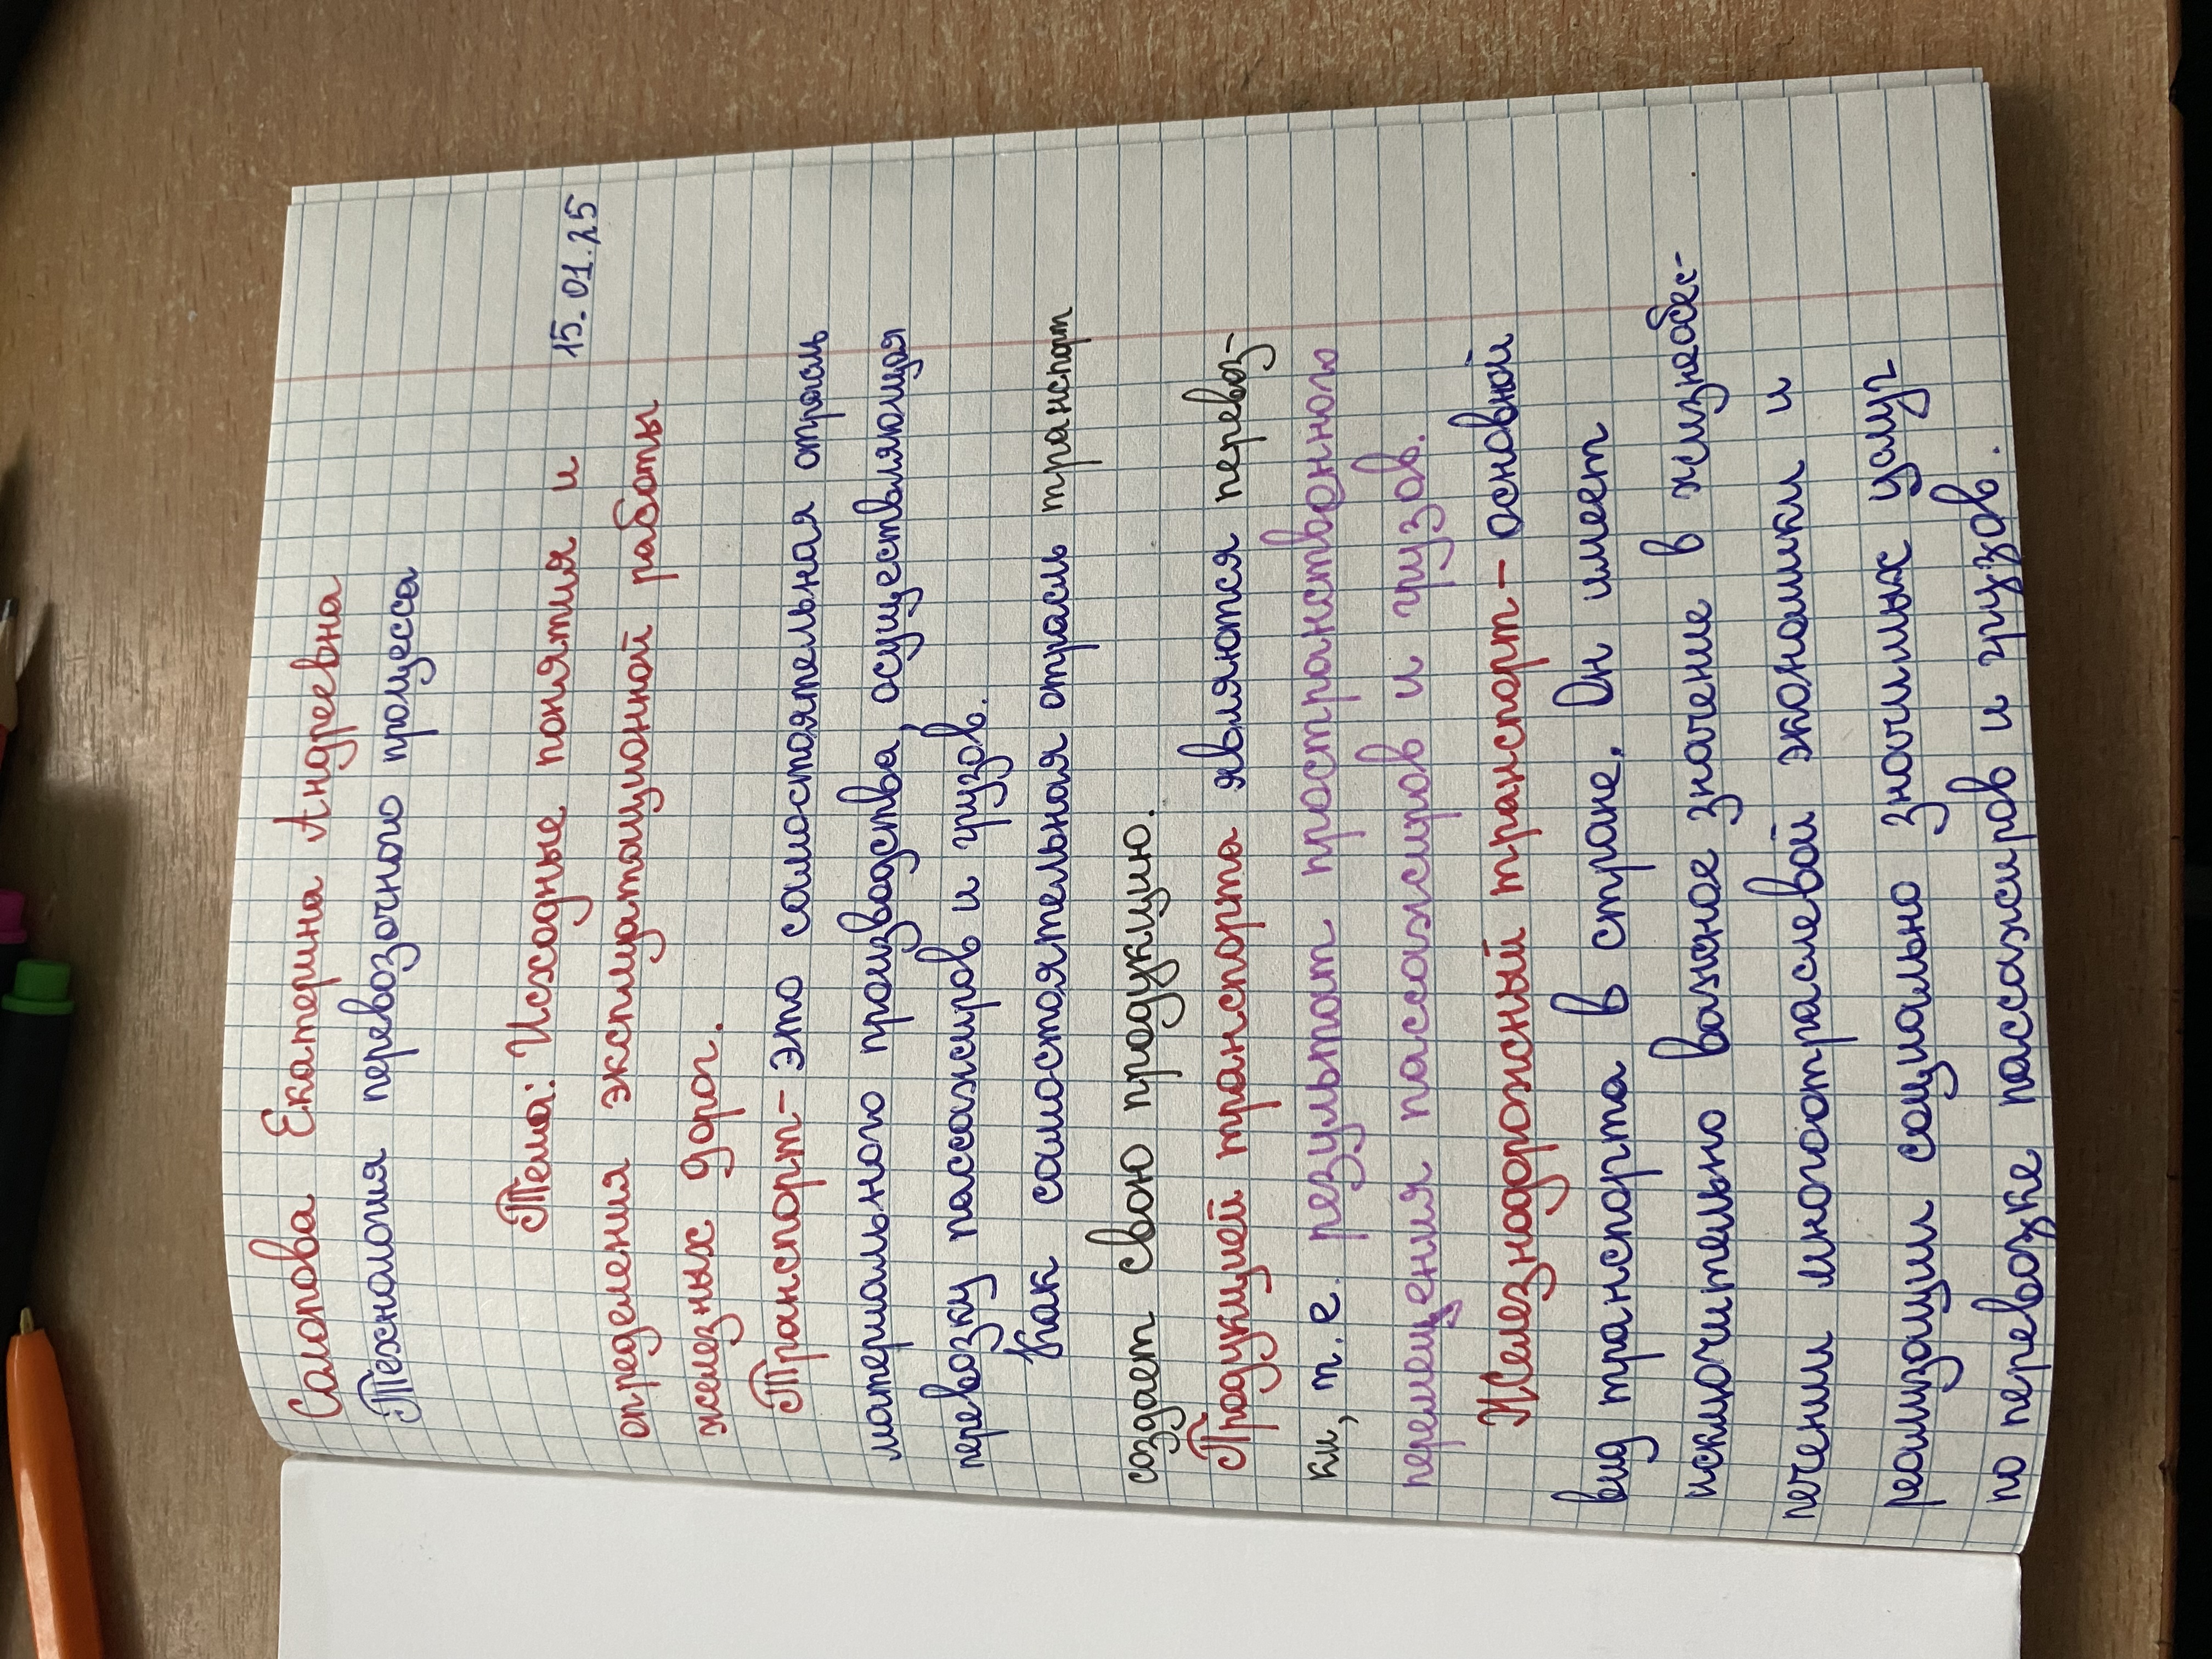 Салопова Екатерина Андреевна
Технология перевозочного процесса
15.01.25
Тема: Исходные понятия и
определения эксплуатационной работы
железных дорог.
Транспорт - это самостоятельная отрасль
материального производства, осуществляющая
перевозку пассажиров и грузов.
Как самостоятельная отрасль транспорт
создает свою продукцию.
Продукцией транспорта являются перевоз-
ки, т.е. результат пространственного
перемещения пассажиров и грузов.
Железнодорожный транспорт - основной
вид транспорта в стране. Он имеет
исключительно важное значение в жизнеобес-
печении многоотраслевой экономики и
реализации социально значимых услуг
по перевозке пассажиров и грузов.